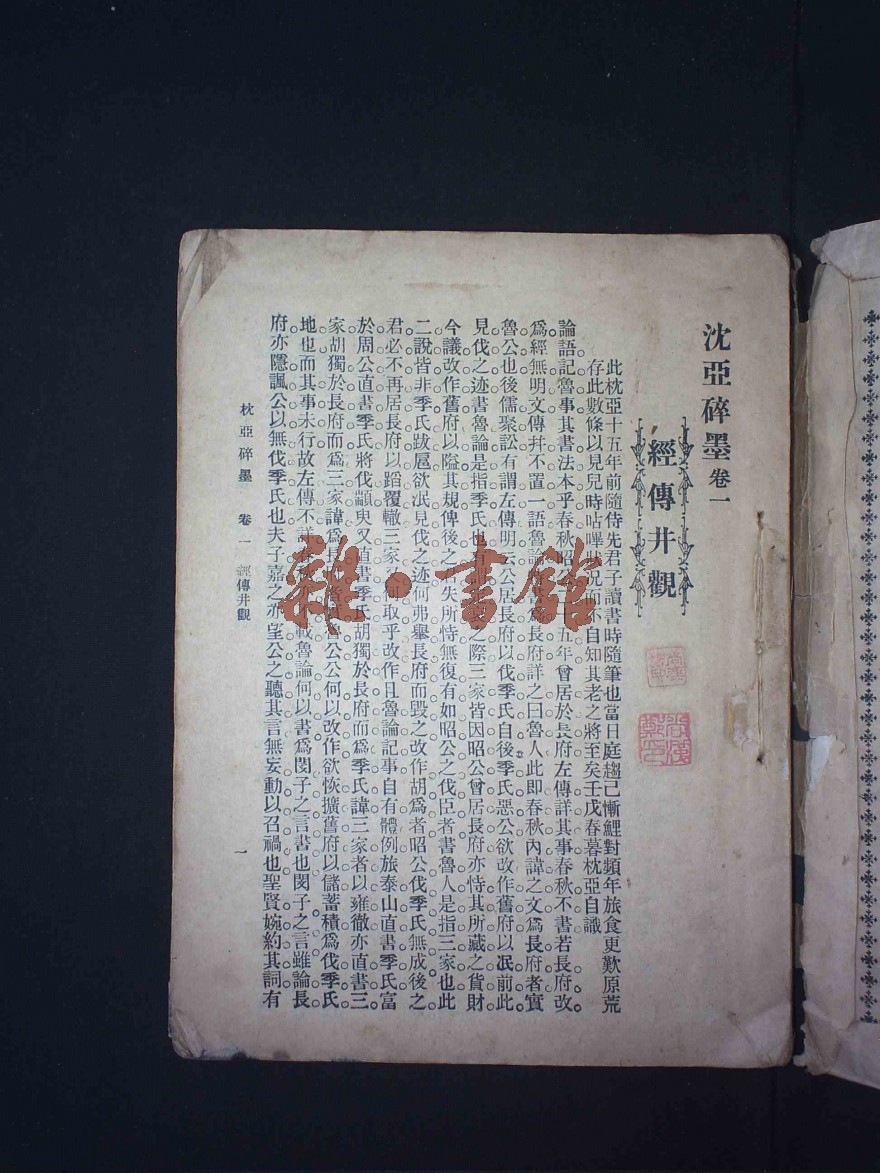 沈亞碎墨 卷一
經傳井觀
此枕亞十五年前隨侍先君子讀書時隨筆也當日庭趨已慚鯉對頻年旅食更歎原荒
存此數條以見兒時咕嗶狀況而不自知其老之將至矣壬戊春暮枕亞自識
論語記魯事其書法本乎春秋昭五年曾居於長府左傳詳其事春秋不書若長府改。
爲經無明文傳幷不置一語魯論爲長府詳之曰魯人此卽春秋內諱之文爲長府者實
魯公也後儒聚訟有謂左傳明云公居長府以伐季氏自後季氏惡公欲改作舊府以泯前此
見伐之迹書魯論是指季氏也之際三家皆因昭公曾居長府亦恃其所藏之貨財
今議改作舊府以隘其規俾後之失所恃無復有如昭公之伐臣者書魯人是指三家也此
二說皆非季氏跋扈欲泯見伐之迹何弗舉長府而毀之改作胡爲者昭公伐季氏無成後之
君必不再居長府以蹈覆轍三家何取乎改作且魯論記事自有體例旅泰山直書季氏富
於周公直書季氏將伐顓臾又直書季氏胡獨於長府而爲季氏諱三家者以雍徹亦直書三
家胡獨於長府而爲三家諱爲長魯公公何以改作欲恢擴舊府以儲蓄積爲伐季氏
地也而其事未行故左傳不載魯論何以書爲閔子之言書也閔子之言雖論長
府亦隱諷公以無伐季氏也夫子嘉之亦望公之聽其言無妄動以召禍也聖賢婉約其詞有
枕亞碎墨 卷一 經傳井觀
一
雜·書館